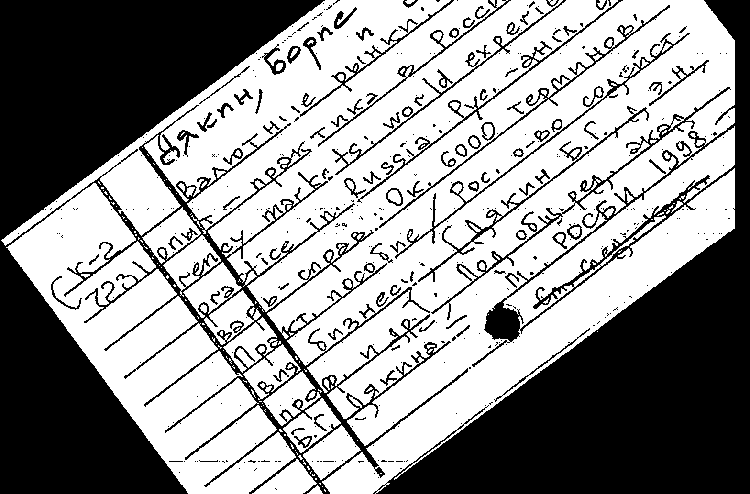 Дякин, Борис
Валютные рынки:
опыт – практика в России
rency markets: world experie
practice in Russia: Рус.-англ. сло
варь-справ.: Ок. 6000 терминов:
Практ. пособие / Рос. о-во содейст-
вия бизнесу; [Дякин Б.Г., д.э.н.,
проф. и др.]; Под общ. ред. акад.
Б.Г. Дякина. – М.: РОСБИ, 1998. –
СК-2
7231
См. след. карт.